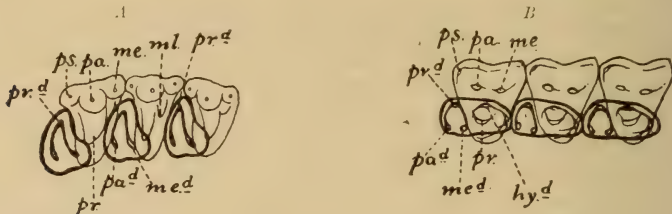 A
B
ps. pa. me. ml. pr.d
pr.d
pr. pa.d me.d
ps. pa. me.
pr.d
pa.d pr.
me.d hy.d